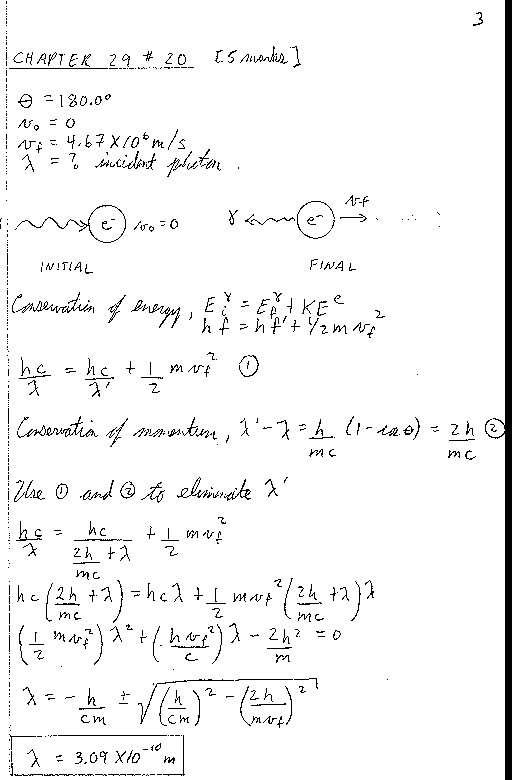 3
CHAPTER 29 # 20 [5 marks]
θ = 180.0°
v₀ = 0
v_f = 4.67 X 10⁶ m/s
λ = ? incident photon.
e⁻ v₀ = 0 γ e⁻ v_f
INITIAL FINAL
Conservation of energy, E_i^γ = E_f^γ + KE^e
hf = hf' + 1/2 m v_f²
hc/λ = hc/λ' + 1/2 m v_f² ①
Conservation of momentum, λ' - λ = h/mc (1 - cos θ) = 2h/mc ②
Use ① and ② to eliminate λ'
hc/λ = hc/(2h/mc + λ) + 1/2 m v_f²
hc(2h/mc + λ) = hcλ + 1/2 m v_f² (2h/mc + λ) λ
(1/2 m v_f²) λ² + (h v_f²/c) λ - 2h²/m = 0
λ = - h/cm ± √((h/cm)² - (2h/mv_f)²)
λ = 3.09 X 10⁻¹⁰ m